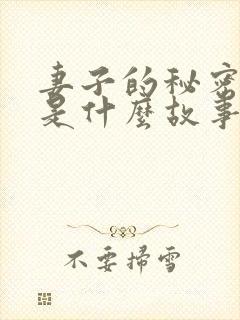 妻子的秘密
是什麼故事
不要掃雪